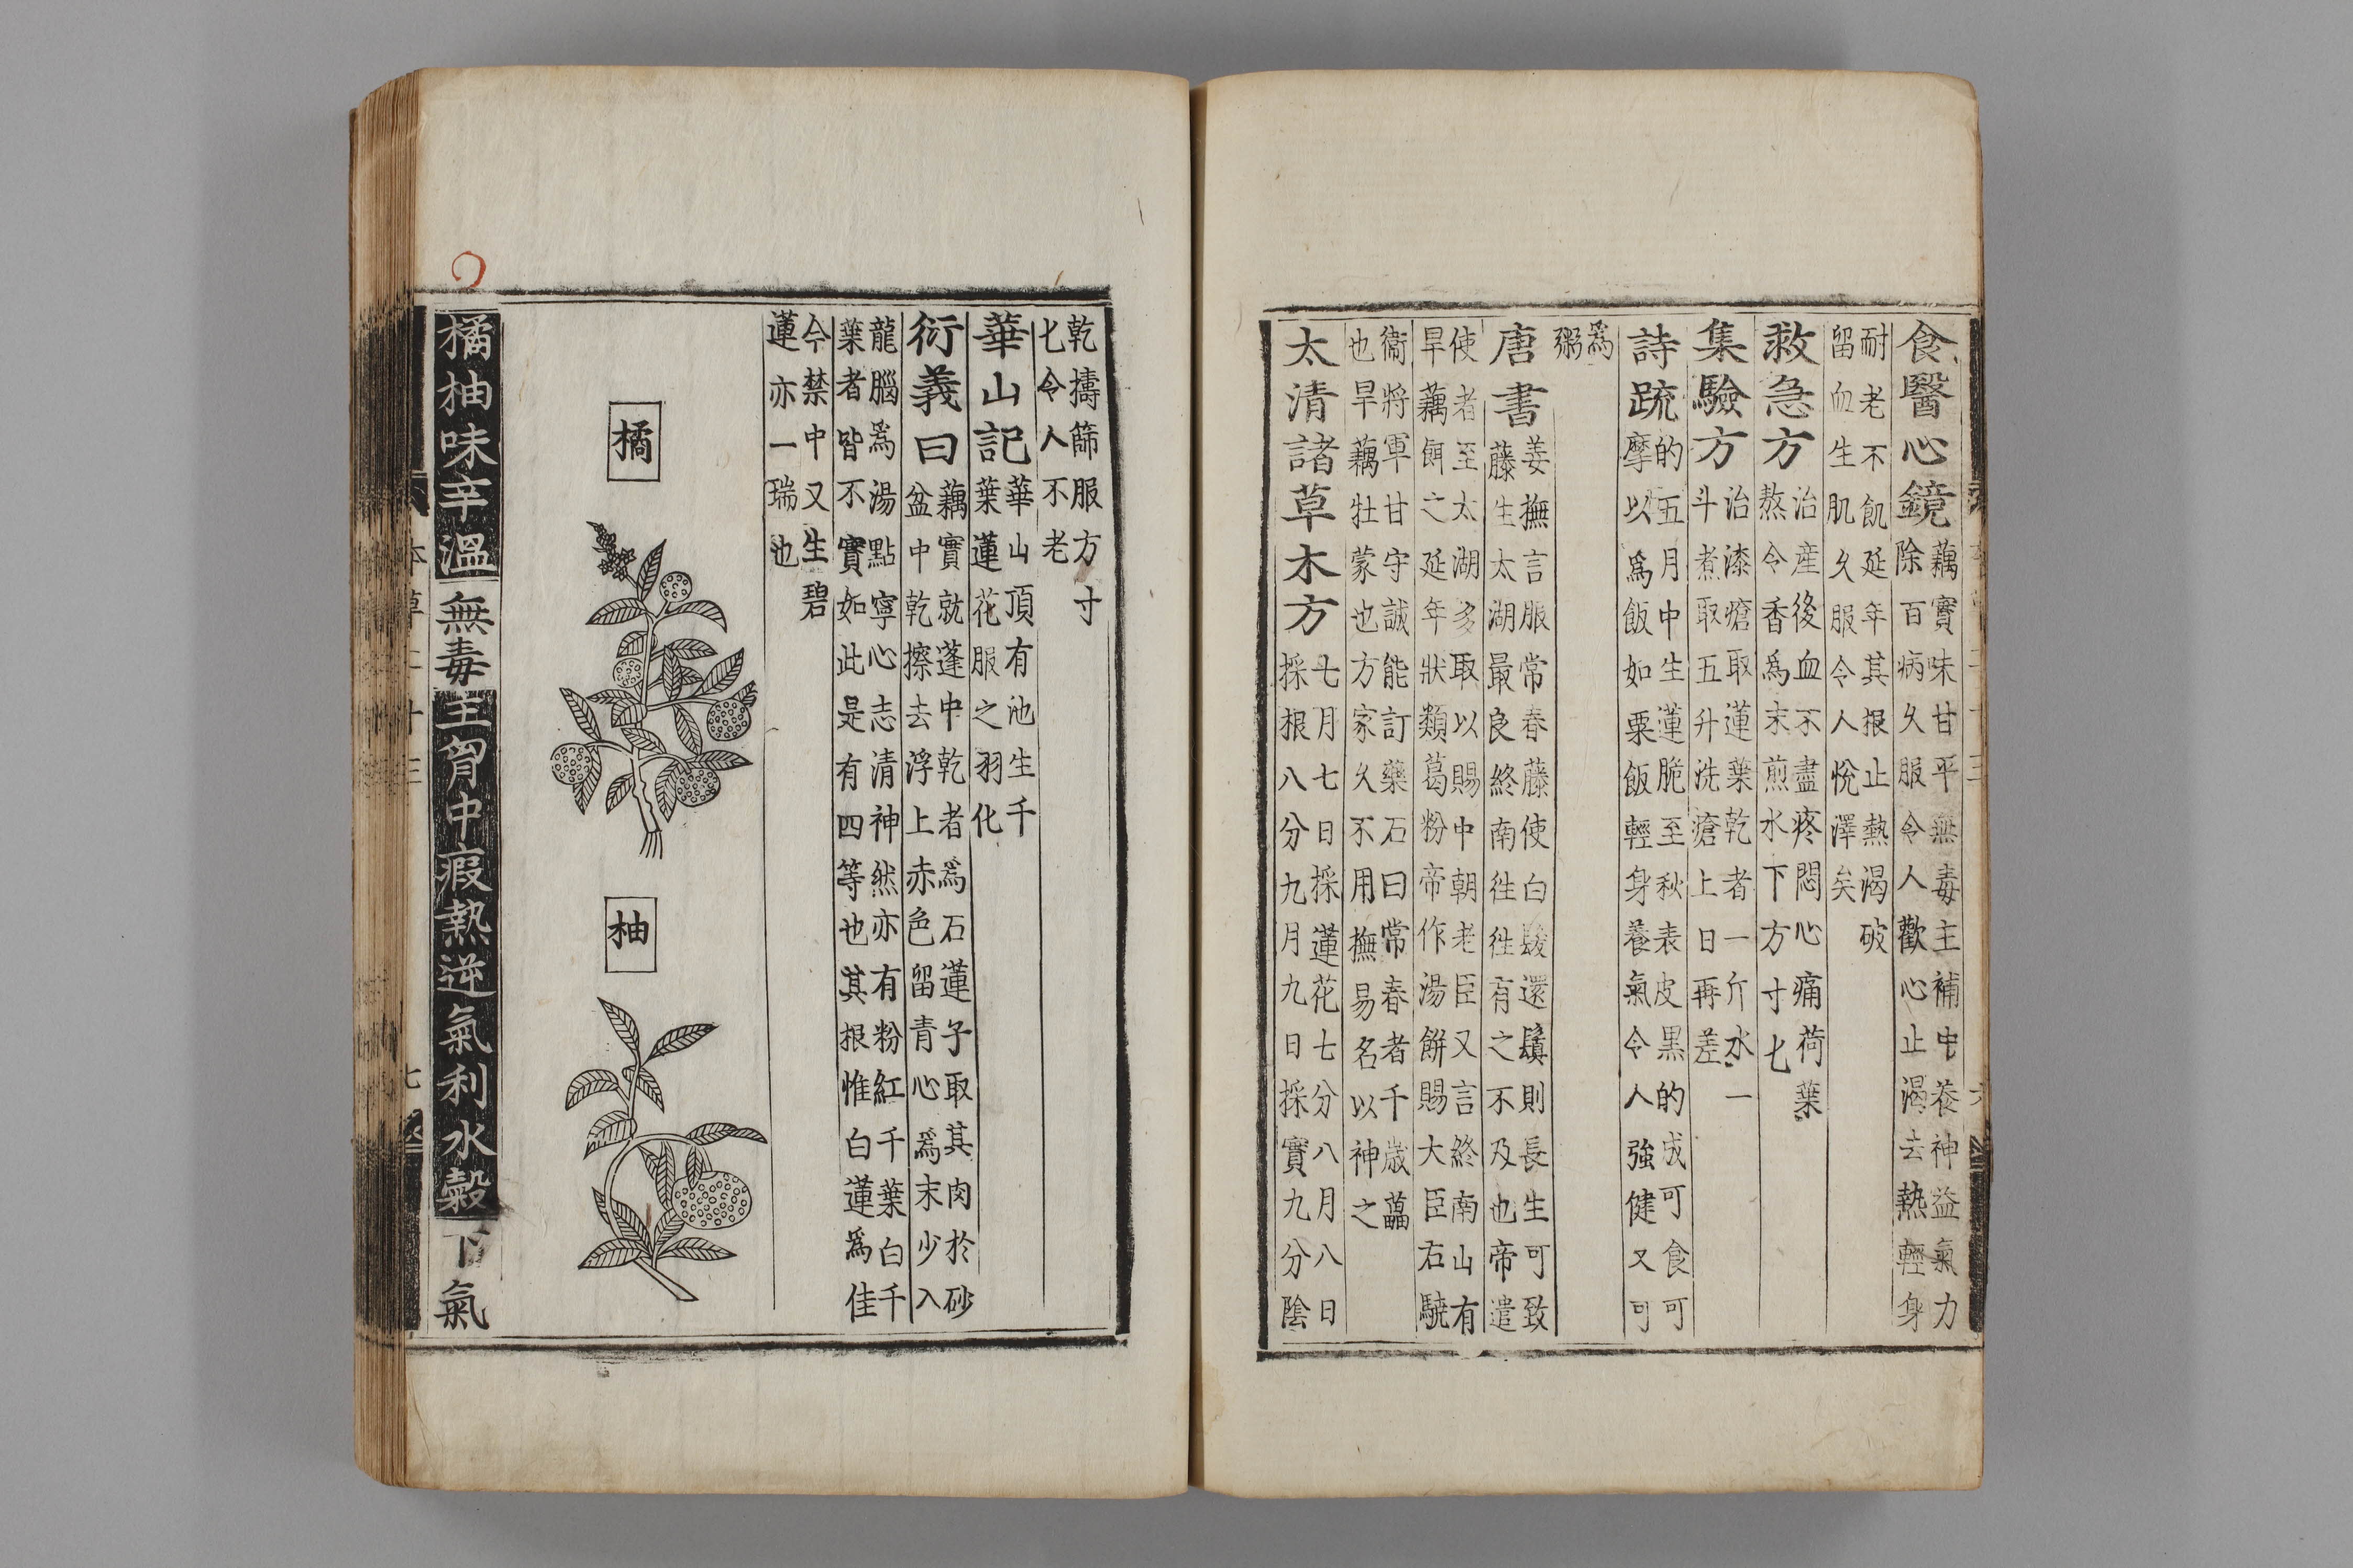 食醫心鏡
藕實味甘平無毒主補中養神益氣力
除百病久服令人歡心止渴去熱輕身
耐老不飢延年其根止熱渴破
留血生肌久服令人悅澤矣
救急方
治産後血不盡疼悶心痛荷葉
熬令香爲末煎水下方寸匕
集驗方
治漆瘡取蓮葉乾者一斤水一
斗煮取五升洗瘡上日再差
詩疏
的五月中生蓮脆至秋表皮黒的成可食可
摩以爲飯如粟飯輕身養氣令人強健又可
爲
粥
唐書
姜撫言服常春藤使白髮還鬒則長生可致
藤生太湖最良終南往往有之不及也帝遣
使者至太湖多取以賜中朝老臣又言終南山有
旱藕餌之延年狀類葛粉帝作湯餅賜大臣右驍
衛將軍甘守誠能訂藥石曰常春者千歲藟
也旱藕牡蒙也方家久不用撫易名以神之
太清諸草木方
七月七日採蓮花七分八月八日
採根八分九月九日採實九分陰
乾擣篩服方寸
匕令人不老
華山記
華山頂有池生千
葉蓮花服之羽化
衍義曰
藕實就蓬中乾者爲石蓮子取其肉於砂
盆中乾擦去浮上赤色留青心爲末少入
龍腦爲湯點寧心志清神然亦有粉紅千葉白千
葉者皆不實如此是有四等也其根惟白蓮爲佳
今禁中又生碧
蓮亦一瑞也
橘
柚
橘柚味辛溫無毒主胷中瘕熱逆氣利水穀下氣
本草二十三
七